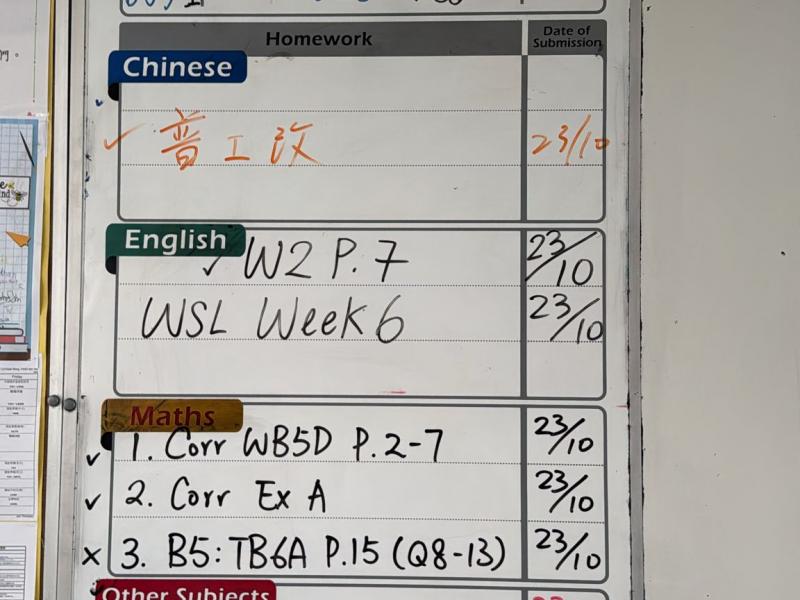 Homework
Date of Submission
Chinese
✓ 普工改 23/10
English
✓ W2 P.7 23/10
WSL Week 6 23/10
Maths
✓ 1. Corr WB5D P.2-7 23/10
✓ 2. Corr Ex A 23/10
× 3. B5: TB6A P.15 (Q8-13) 23/10
Other Subjects